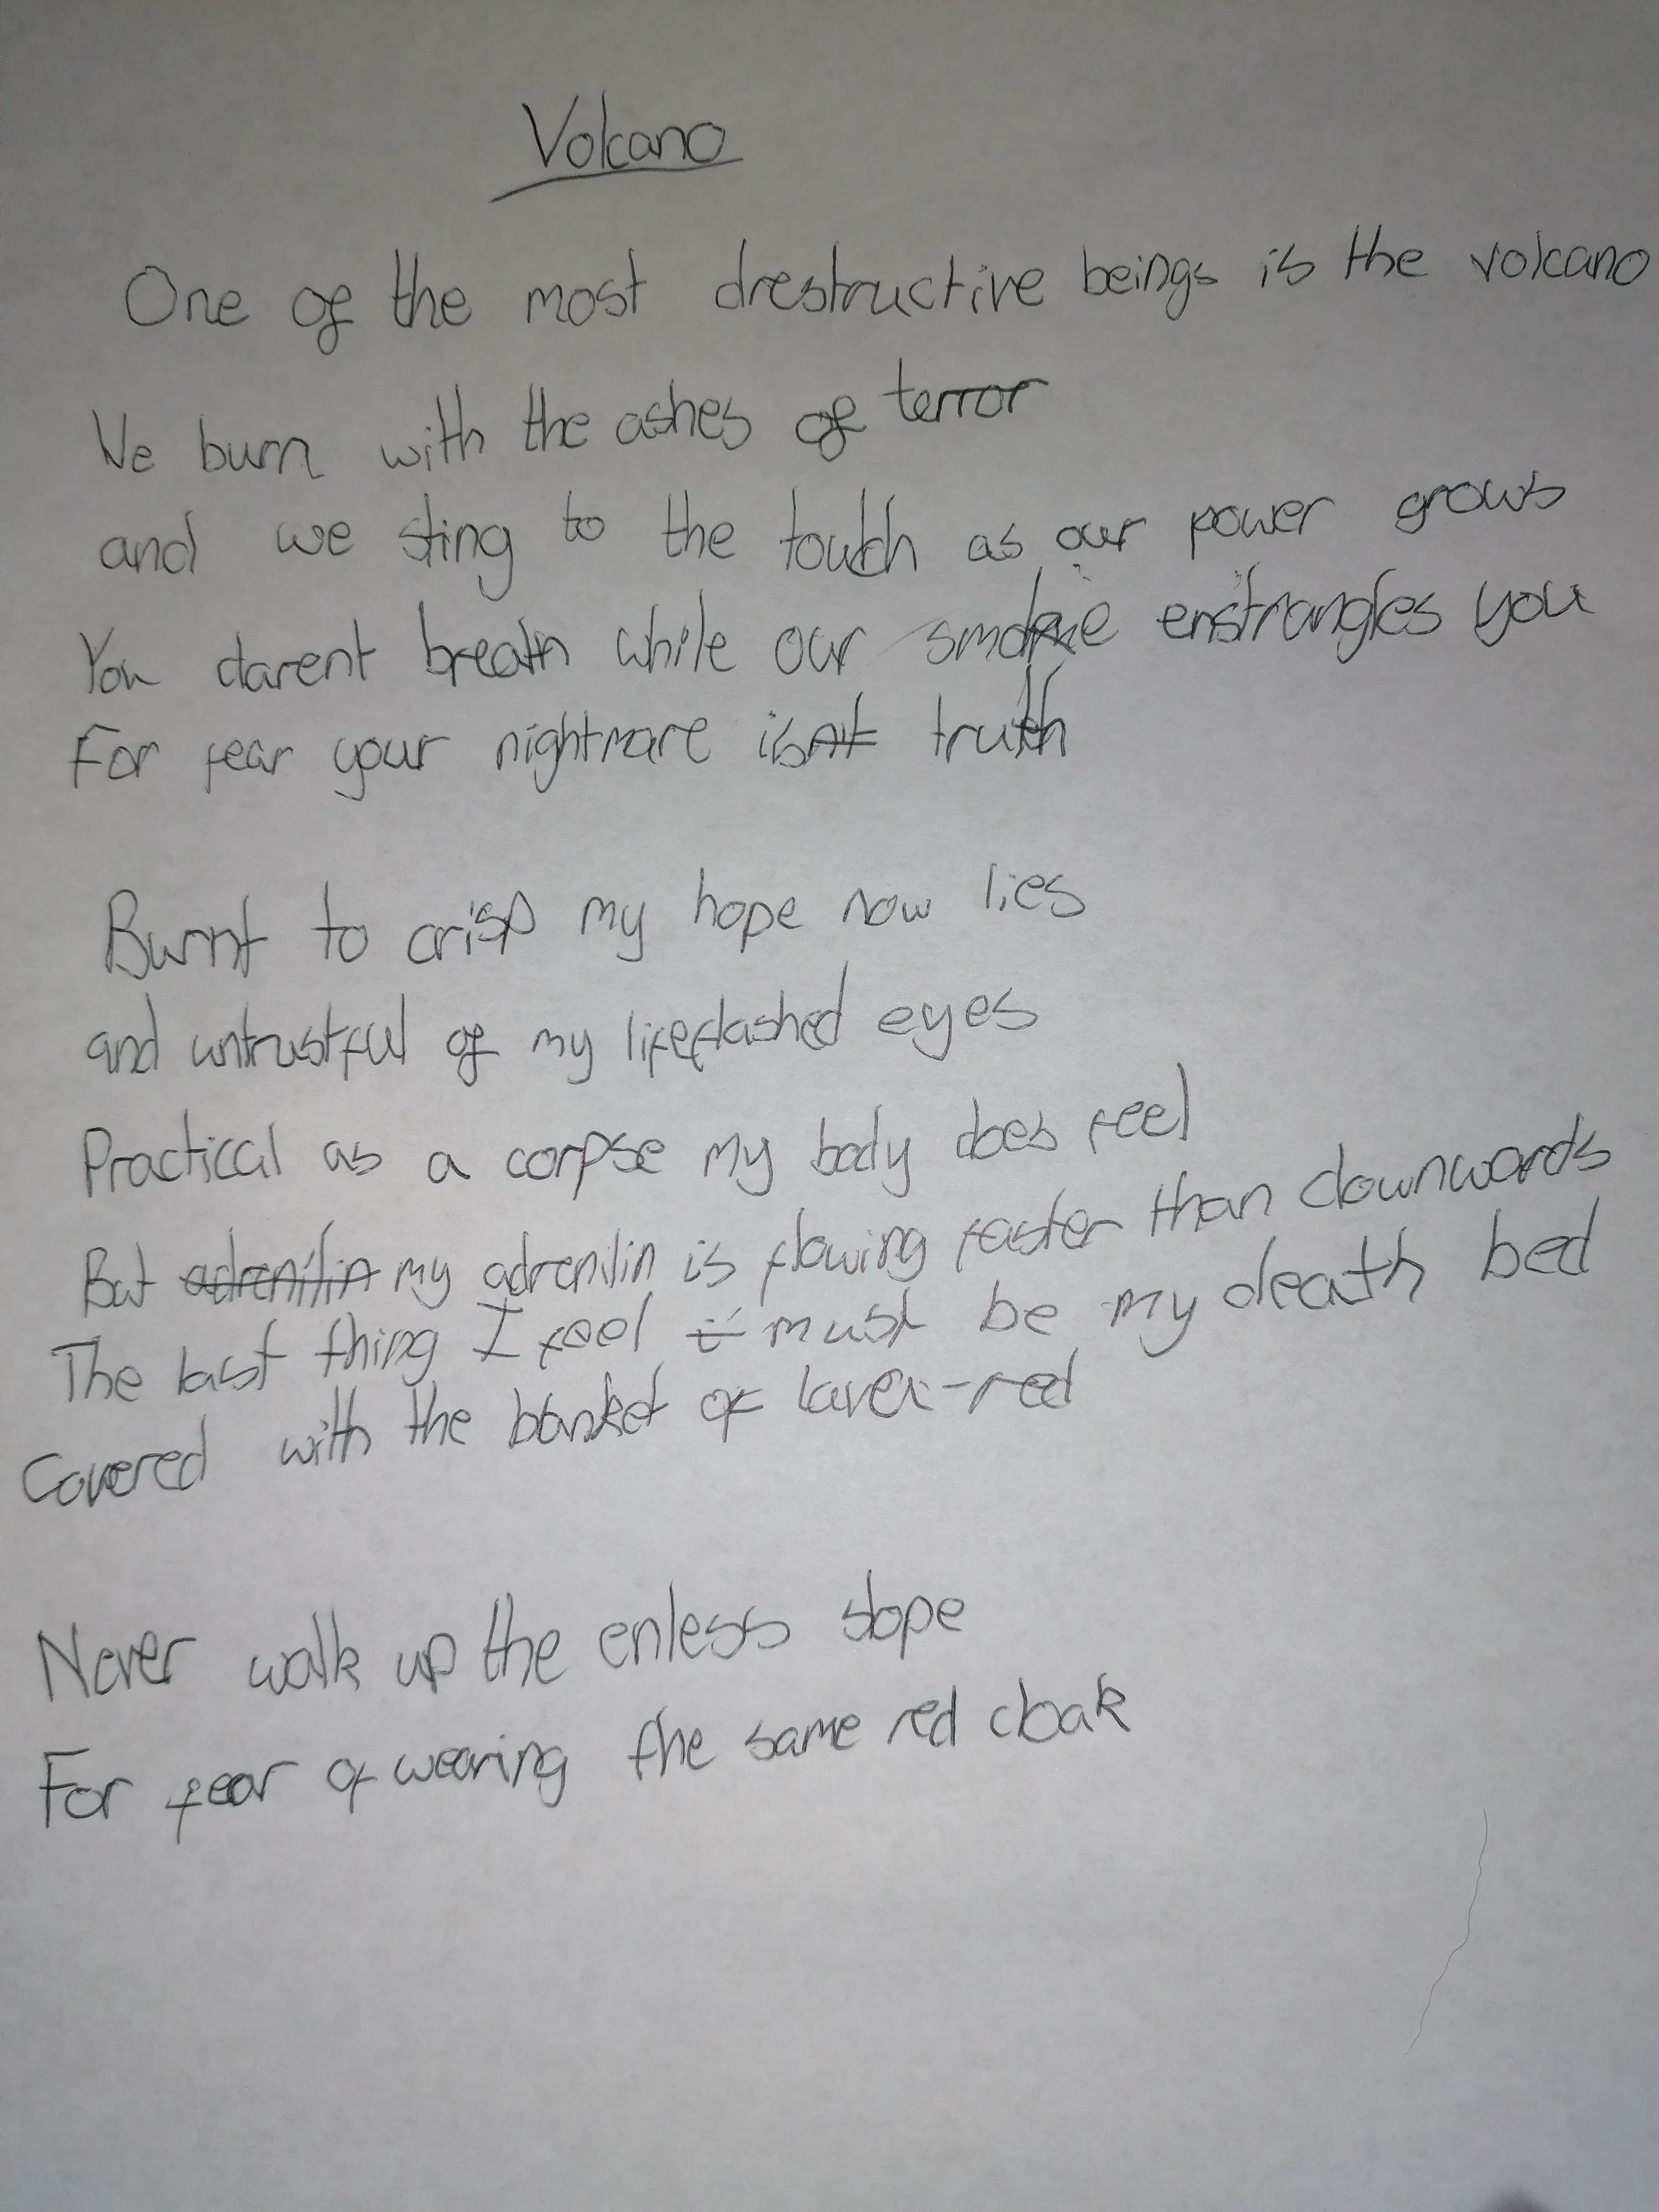 Volcano
One of the most drestructive beings is the volcano
We burn with the ashes of terror
and we sting to the touch as our power grows
You darent breath while our smoke enstrangles you
For fear your nightmare is truth
Burnt to crisp my hope now lies
and untrustful of my lifeflashed eyes
Practical as a corpse my body does feel
But my adrenilin is flowing faster than downwards
The last thing I feel must be my death bed
Covered with the blanket of laver-red
Never walk up the enless slope
For fear of wearing the same red cloak